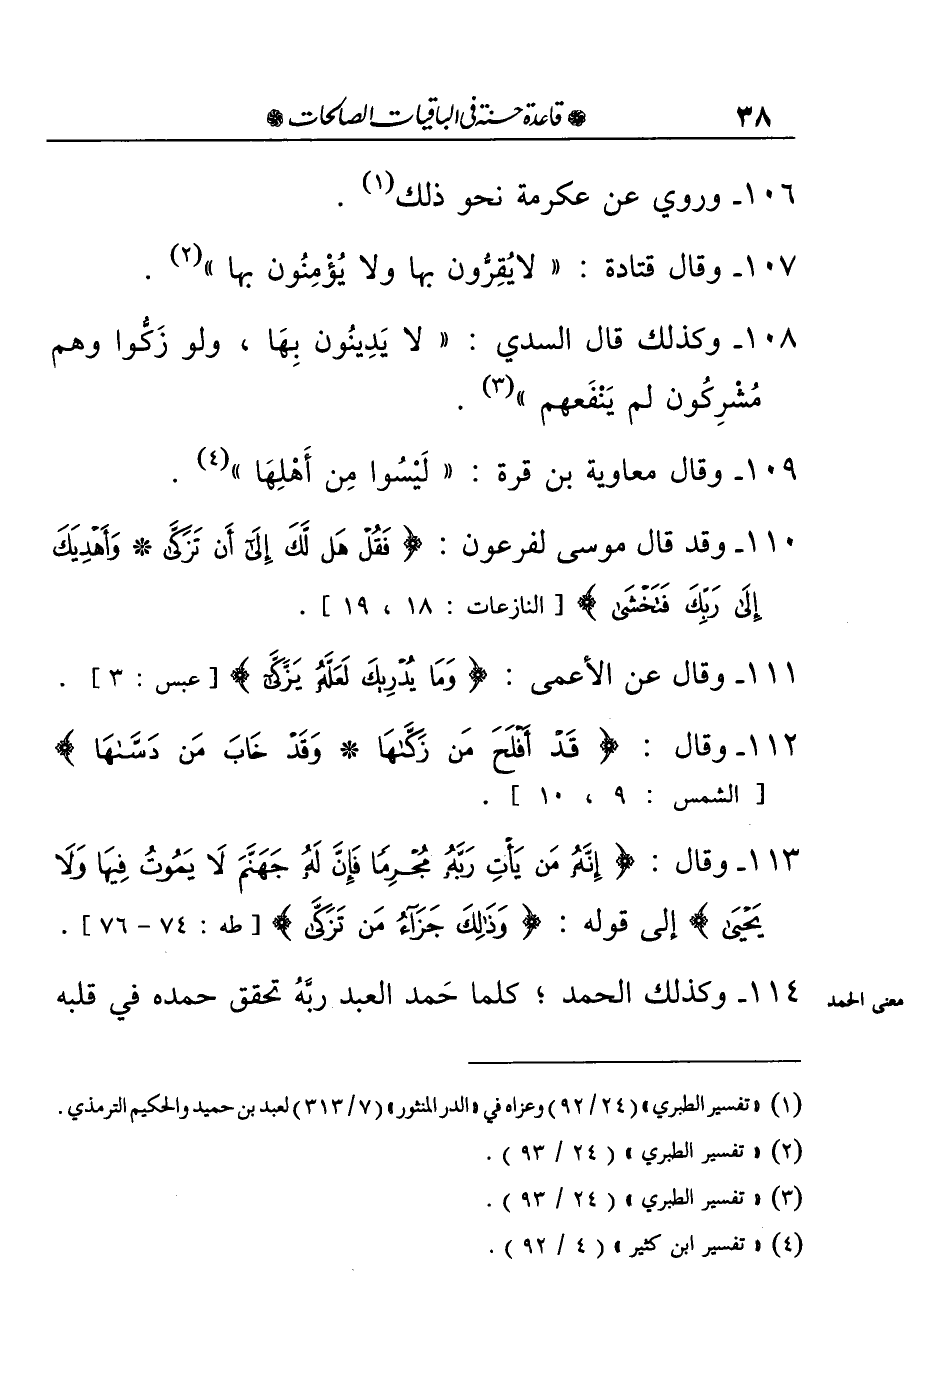 ٣٨ ❁ قاعدة حسنة في الباقيات الصالحات ❁
١٠٦ـ وروي عن عكرمة نحو ذلك(١) .
١٠٧ـ وقال قتادة : « لايُقِرُّون بها ولا يُؤْمِنُون بها »(٢) .
١٠٨ـ وكذلك قال السدي : « لا يَدِينُون بِهَا ، ولو زَكُّوا وهم
مُشْرِكُون لم يَنْفَعهم »(٣) .
١٠٩ـ وقال معاوية بن قرة : « لَيْسُوا مِن أَهْلِهَا »(٤) .
١١٠ـ وقد قال موسى لفرعون : ﴿ فَقُلْ هَل لَّكَ إِلَىٰٓ أَن تَزَكَّىٰ * وَأَهْدِيَكَ
إِلَىٰ رَبِّكَ فَتَخْشَىٰ ﴾ [ النازعات : ١٨ ، ١٩ ] .
١١١ـ وقال عن الأعمى : ﴿ وَمَا يُدْرِيكَ لَعَلَّهُۥ يَزَّكَّىٰٓ ﴾ [ عبس : ٣ ] .
١١٢ـ وقال : ﴿ قَدْ أَفْلَحَ مَن زَكَّىٰهَا * وَقَدْ خَابَ مَن دَسَّىٰهَا ﴾
[ الشمس : ٩ ، ١٠ ] .
١١٣ـ وقال : ﴿ إِنَّهُۥ مَن يَأْتِ رَبَّهُۥ مُجْرِمًا فَإِنَّ لَهُۥ جَهَنَّمَ لَا يَمُوتُ فِيهَا وَلَا
يَحْيَىٰ ﴾ إلى قوله : ﴿ وَذَٰلِكَ جَزَآءُ مَن تَزَكَّىٰ ﴾ [ طه : ٧٤ – ٧٦ ] .
معنى الحمد ١١٤ـ وكذلك الحمد ؛ كلما حَمد العبد ربَّهُ تحقق حمده في قلبه
(١) « تفسير الطبري » (٩٢/٢٤) وعزاه في « الدر المنثور » (٣١٣/٧) لعبد بن حميد والحكيم الترمذي .
(٢) « تفسير الطبري » ( ٢٤ / ٩٣ ) .
(٣) « تفسير الطبري » ( ٢٤ / ٩٣ ) .
(٤) « تفسير ابن كثير » ( ٤ / ٩٢ ) .